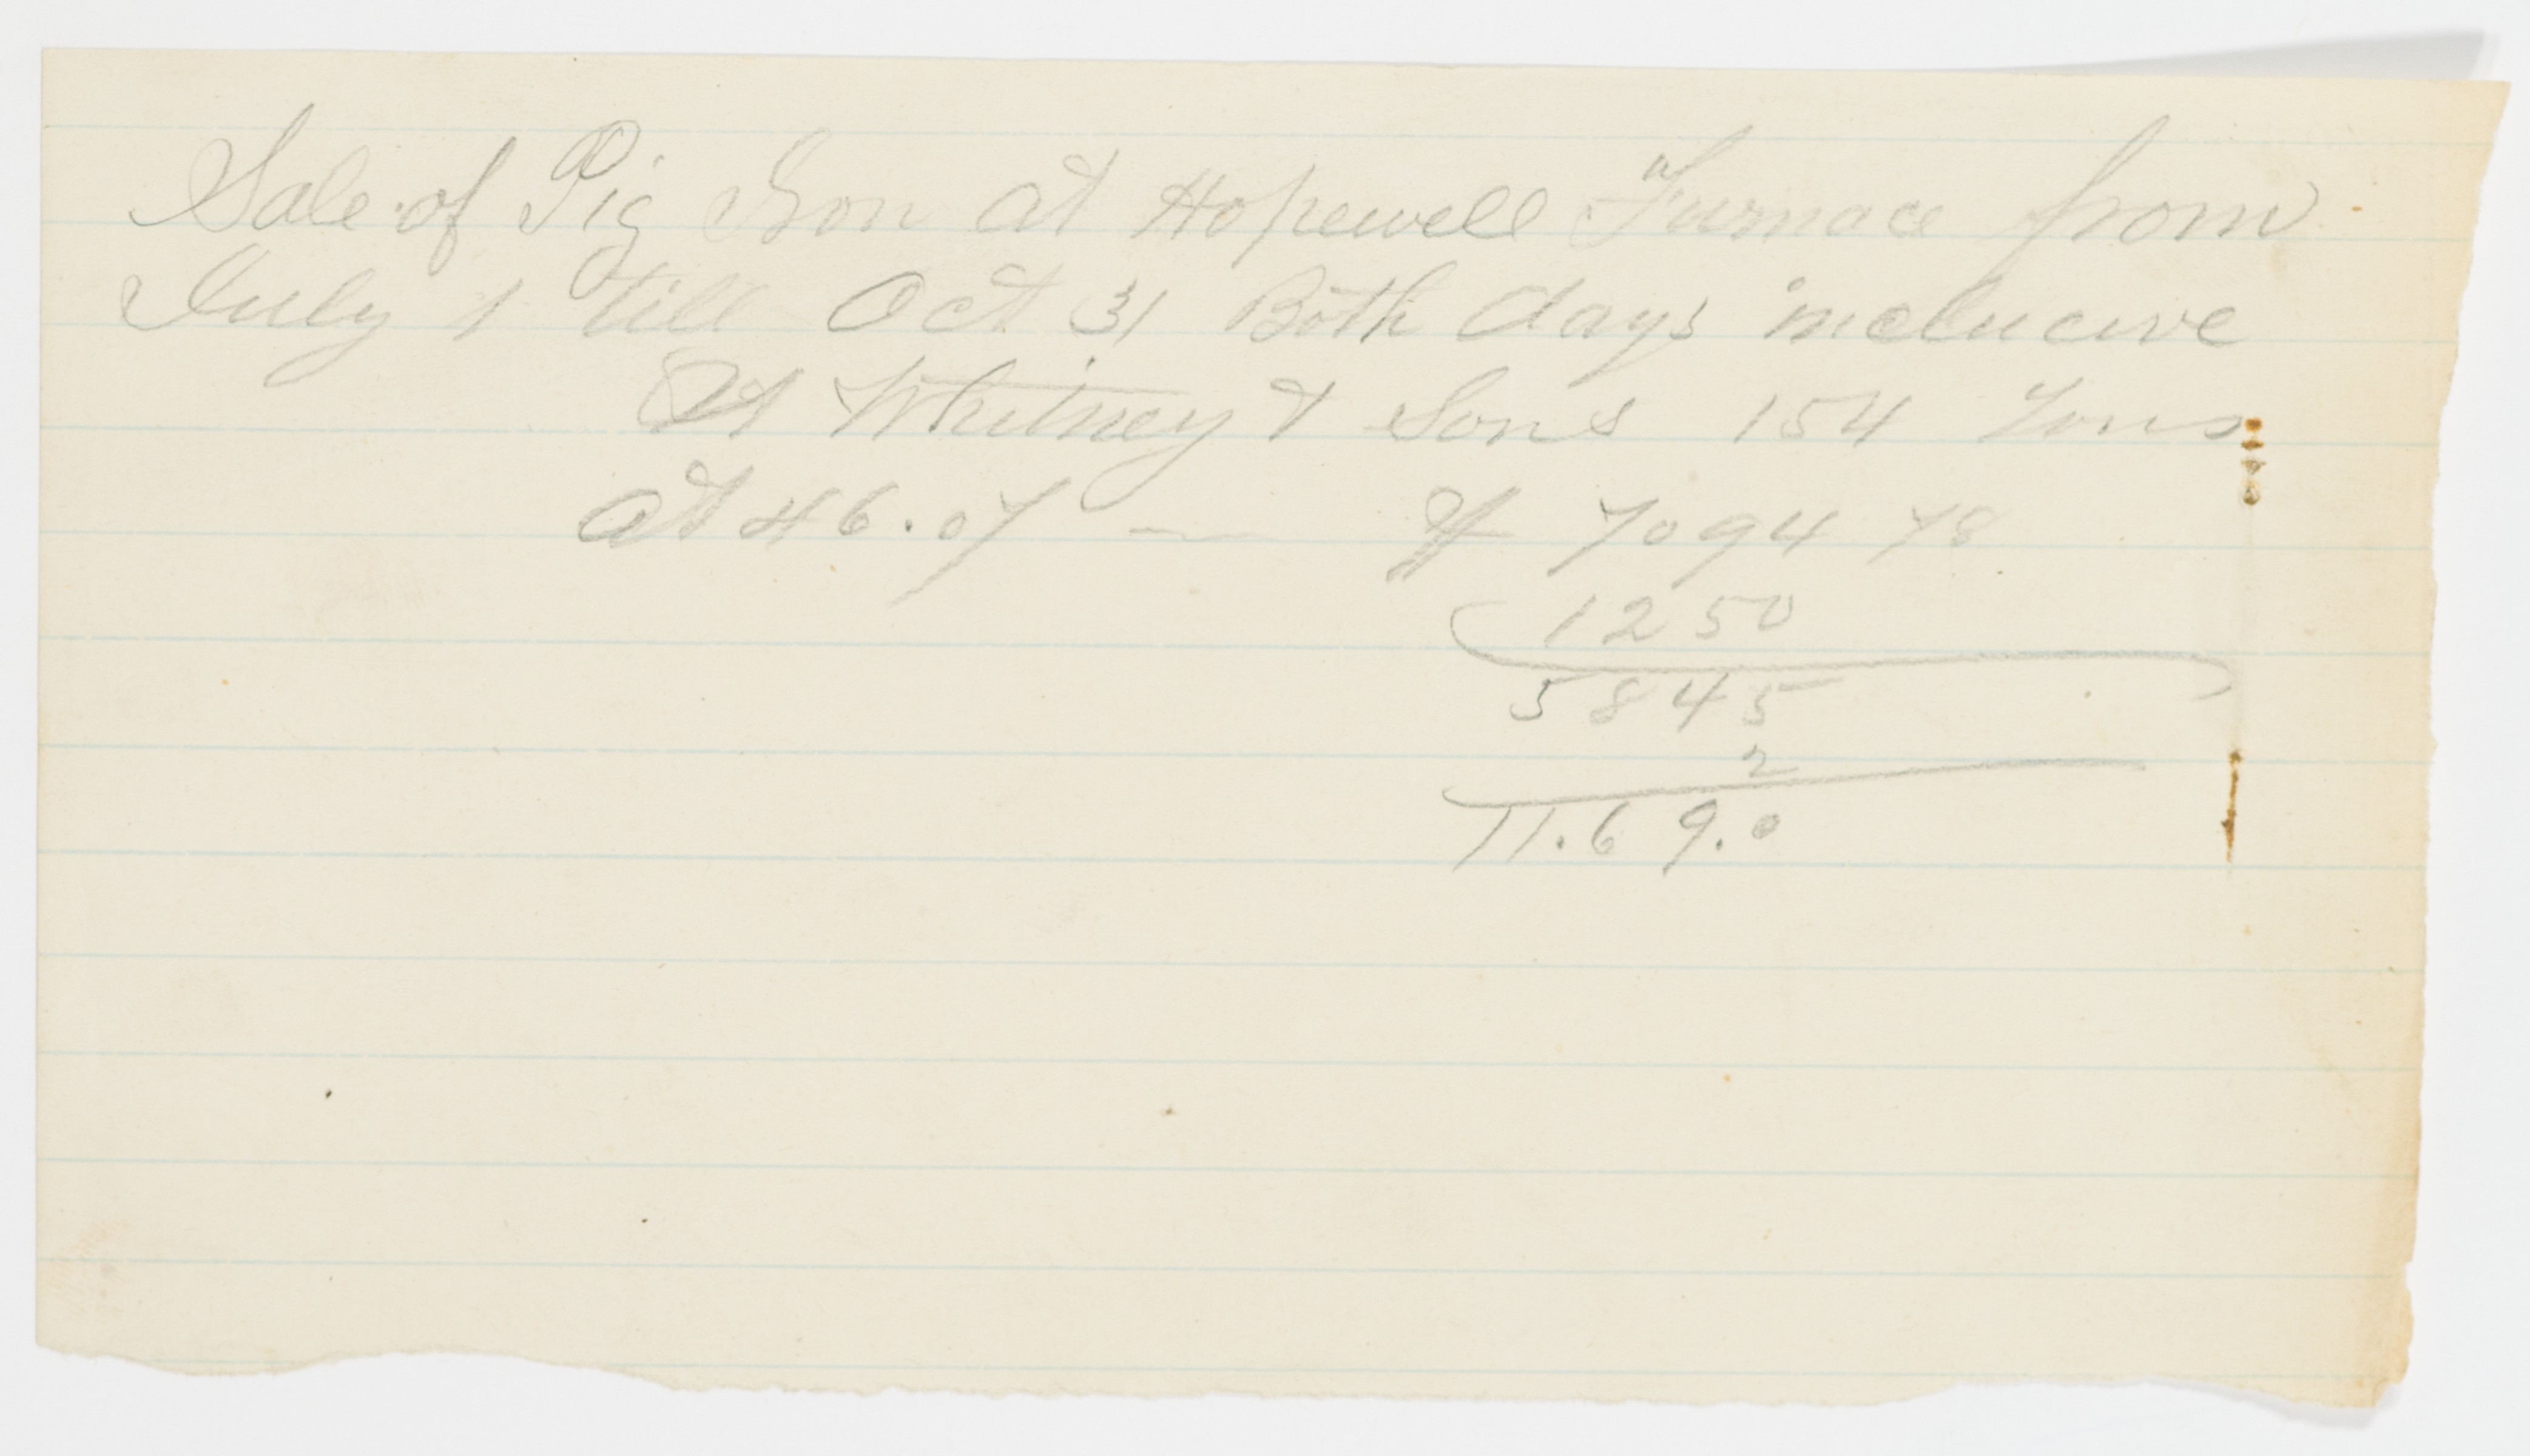 Sale of Pig Iron at Hopewell Furnace from
July 1 till Oct 31 Both days inclucive
At Whitney & Sons 154 Tons
at 46.07 — $ 7094 78
1250
5845
2
11.69.0